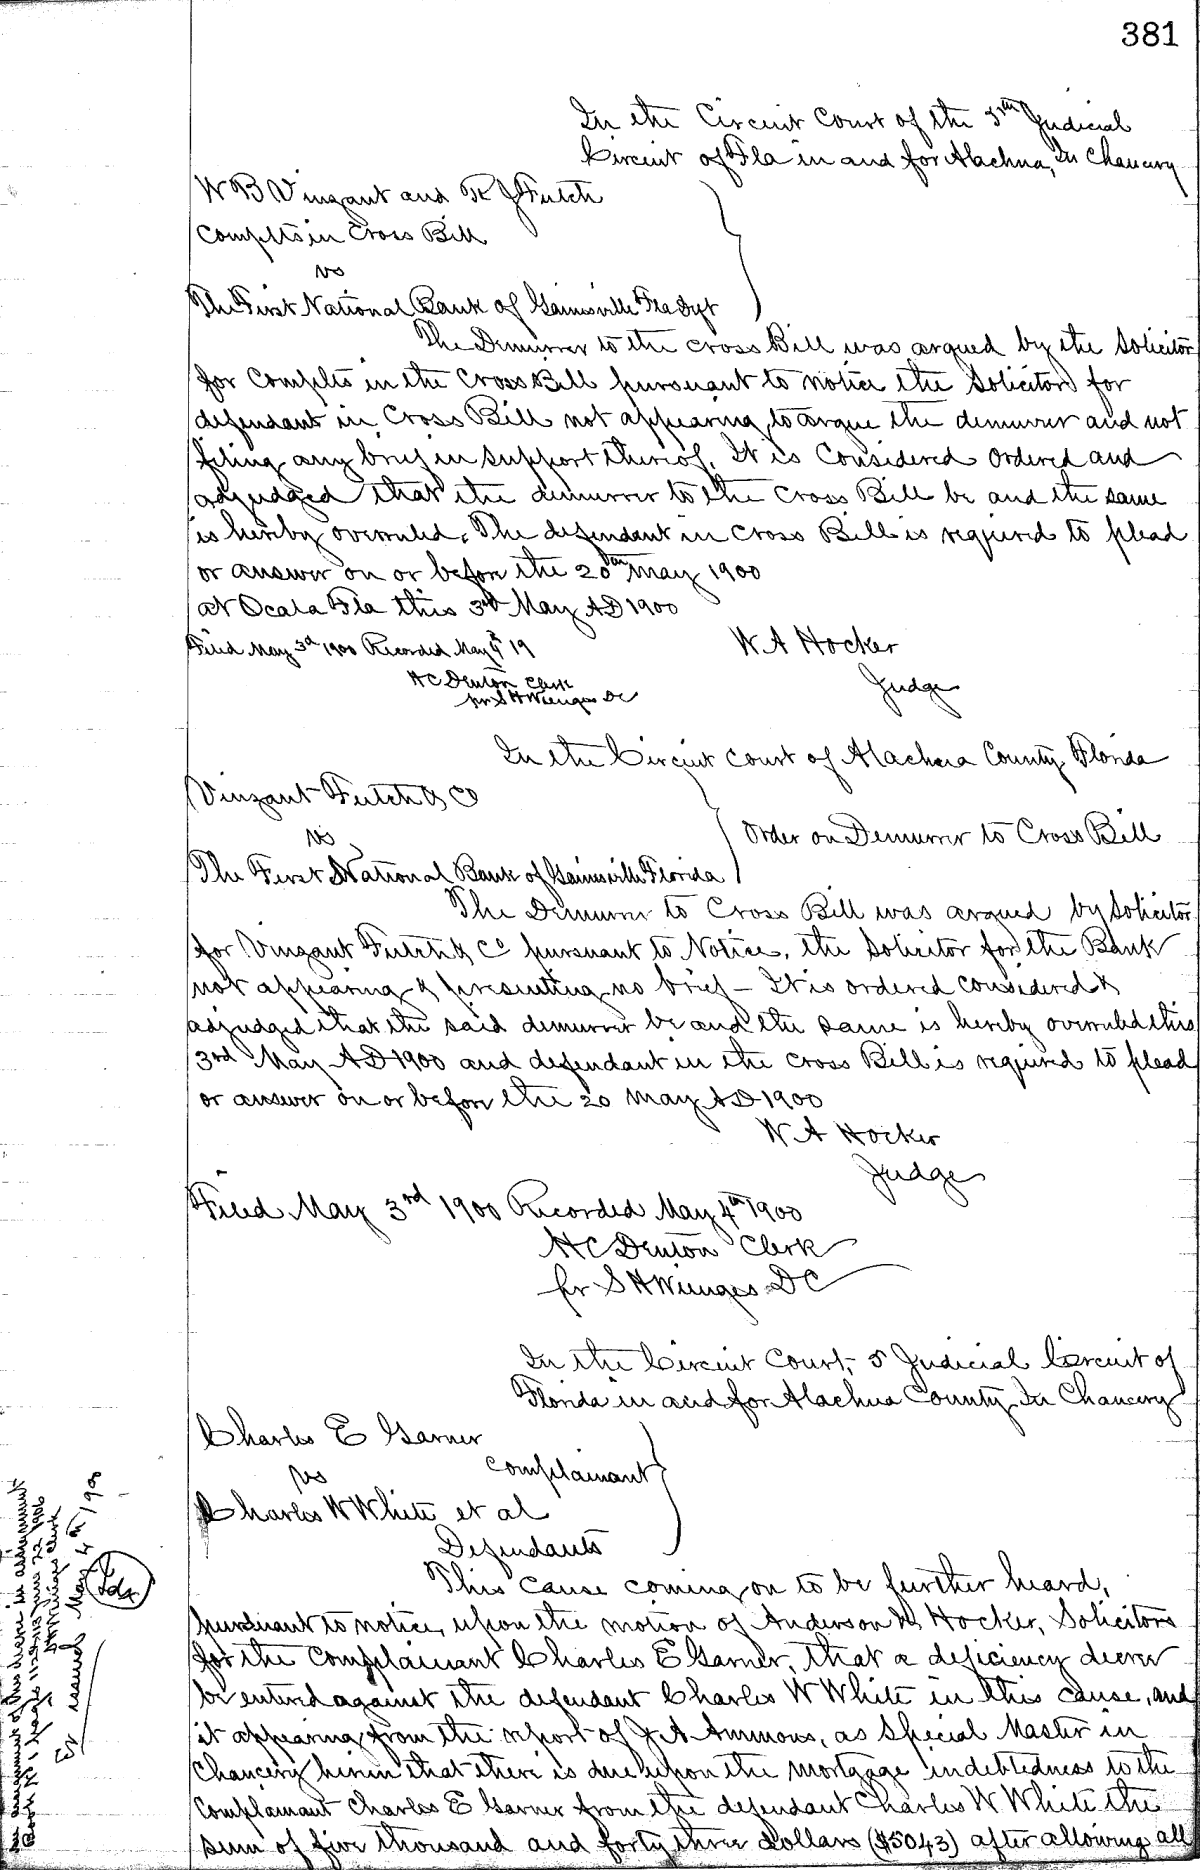 381
In the Circuit Court of the 5th Judicial
Circuit of Fla in and for Alachua, In Chancery
W B Vinzant and R J Futch
Complts in Cross Bill
vs
The First National Bank of Gainsville Fla Dft
The Demurrer to the cross Bill was argued by the Solicitor
for Complts in the Cross Bill pursuant to notice the Solicitor for
defendant in Cross Bill not appearing to argue the demurrer and not
filing any brief in support thereof. It is Considered Ordered and
adjudged that the demurrer to the Cross Bill be and the same
is hereby overruled. The defendant in Cross Bill is required to plead
or answer on or before the 20th May 1900
at Ocala Fla this 3d May AD 1900
Filed May 3d 1900 Recorded May 4th 19
W A Hocker
Judge
H C Denton Clerk
per S H Wienges DC
In the Circuit Court of Alachua County Florida
Vinzant Futch & Co
vs
Order on Demurrer to Cross Bill
The First National Bank of Gainsville Florida
The Demurrer to Cross Bill was argued by Solicitor
for Vinzant Futch & Co pursuant to Notice, the Solicitor for the Bank
not appearing & presenting no brief – It is ordered considered &
adjudged that the said demurrer be and the same is hereby overruled this
3rd May AD 1900 and defendant in the cross Bill is required to plead
or answer on or before the 20 May AD 1900
W A Hocker
Judge
Filed May 3rd 1900 Recorded May 4th 1900
H C Denton Clerk
per S H Wienges DC
In the Circuit Court, 5 Judicial Circuit of
Florida in and for Alachua County In Chancery
Charles E Garner
Complainant
vs
Charles W White et al
Defendants
This cause coming on to be further heard,
pursuant to notice, upon the motion of Anderson & Hocker, Solicitors
for the Complainant Charles E Garner, that a deficiency decree
be entered against the defendant Charles W White in this cause, and
it appearing from the report of J A Ammons, as Special Master in
Chancery herein that there is due upon the mortgage indebtedness to the
Complainant Charles E Garner from the defendant Charles W White the
sum of five thousand and forty three dollars ($5043) after allowing all
assignment of this decree in assignment
Book No 1 page
Wienges Clerk
Ex issued May 4th 1900